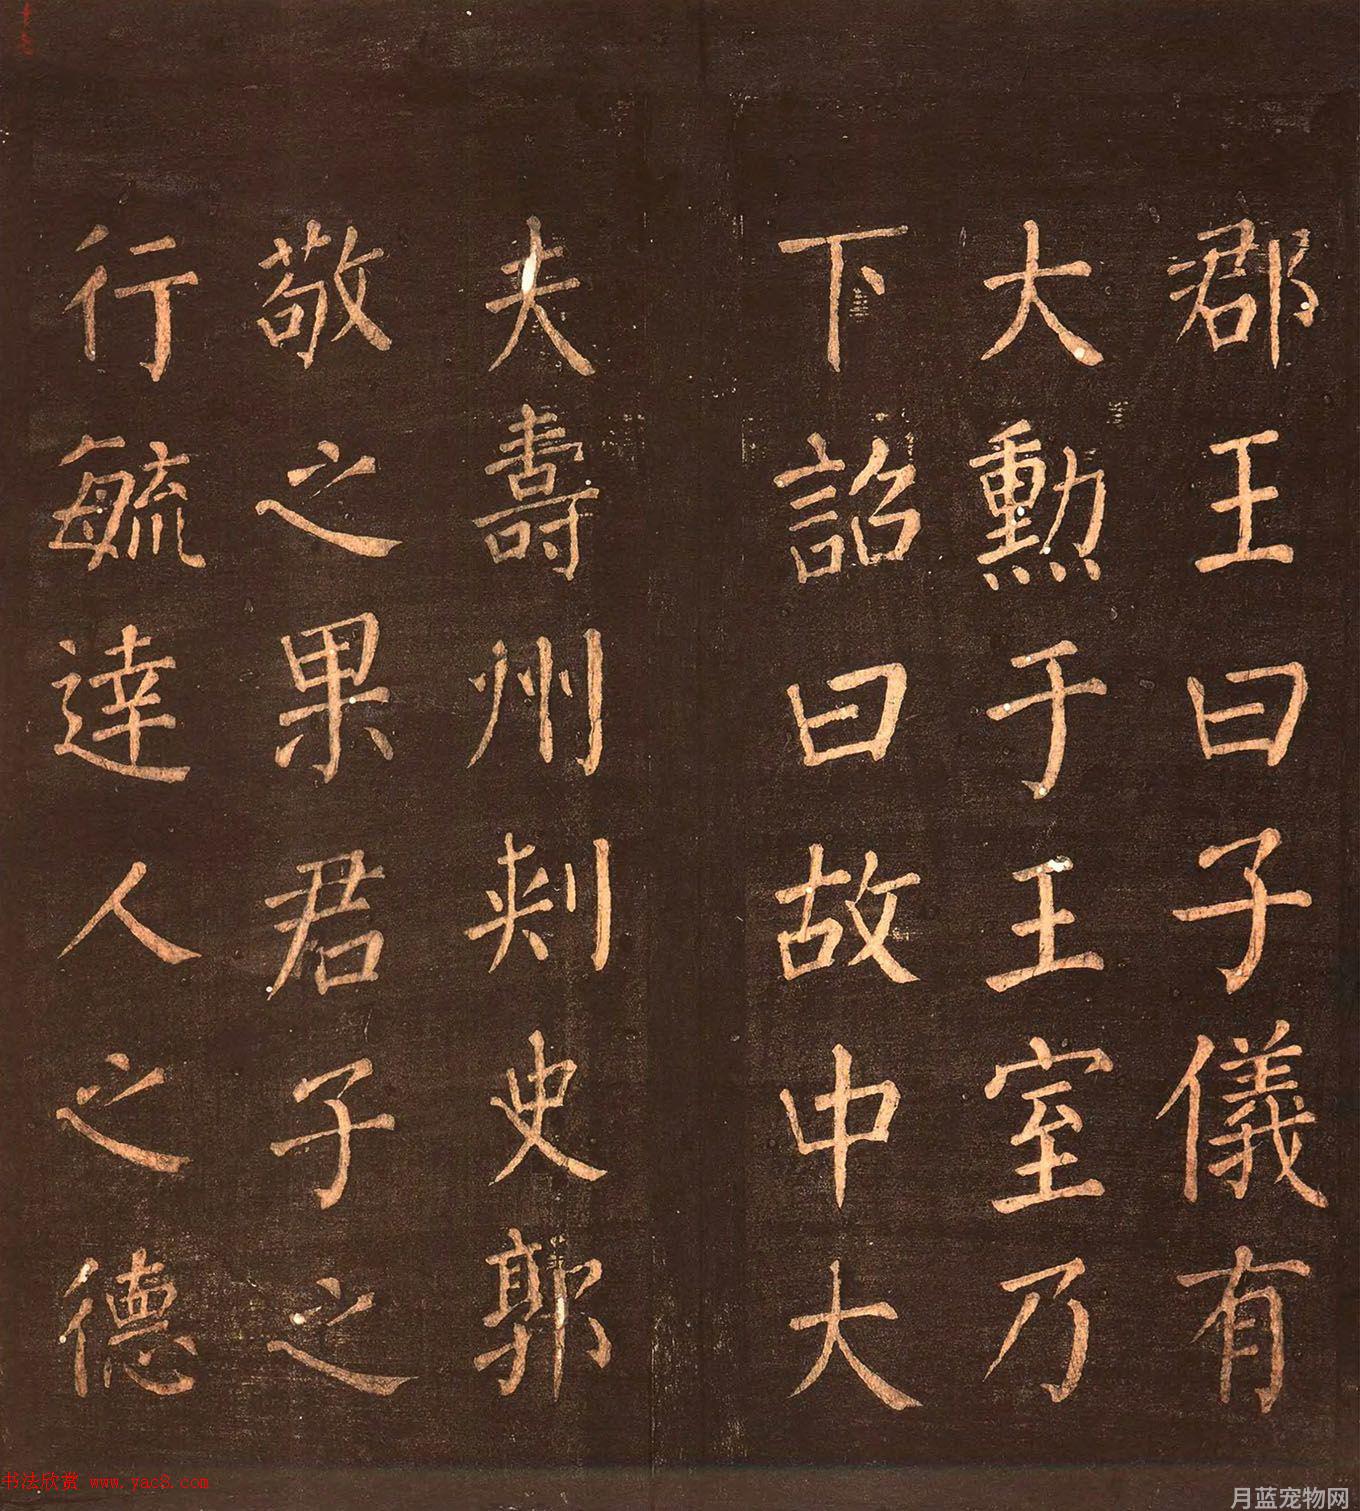 郡王曰子儀有
大勲于王室乃
下詔曰故中大
夫壽州刾史郭
敬之果君子之
行毓達人之德
书法欣赏 www.yac8.com
月蓝宠物网